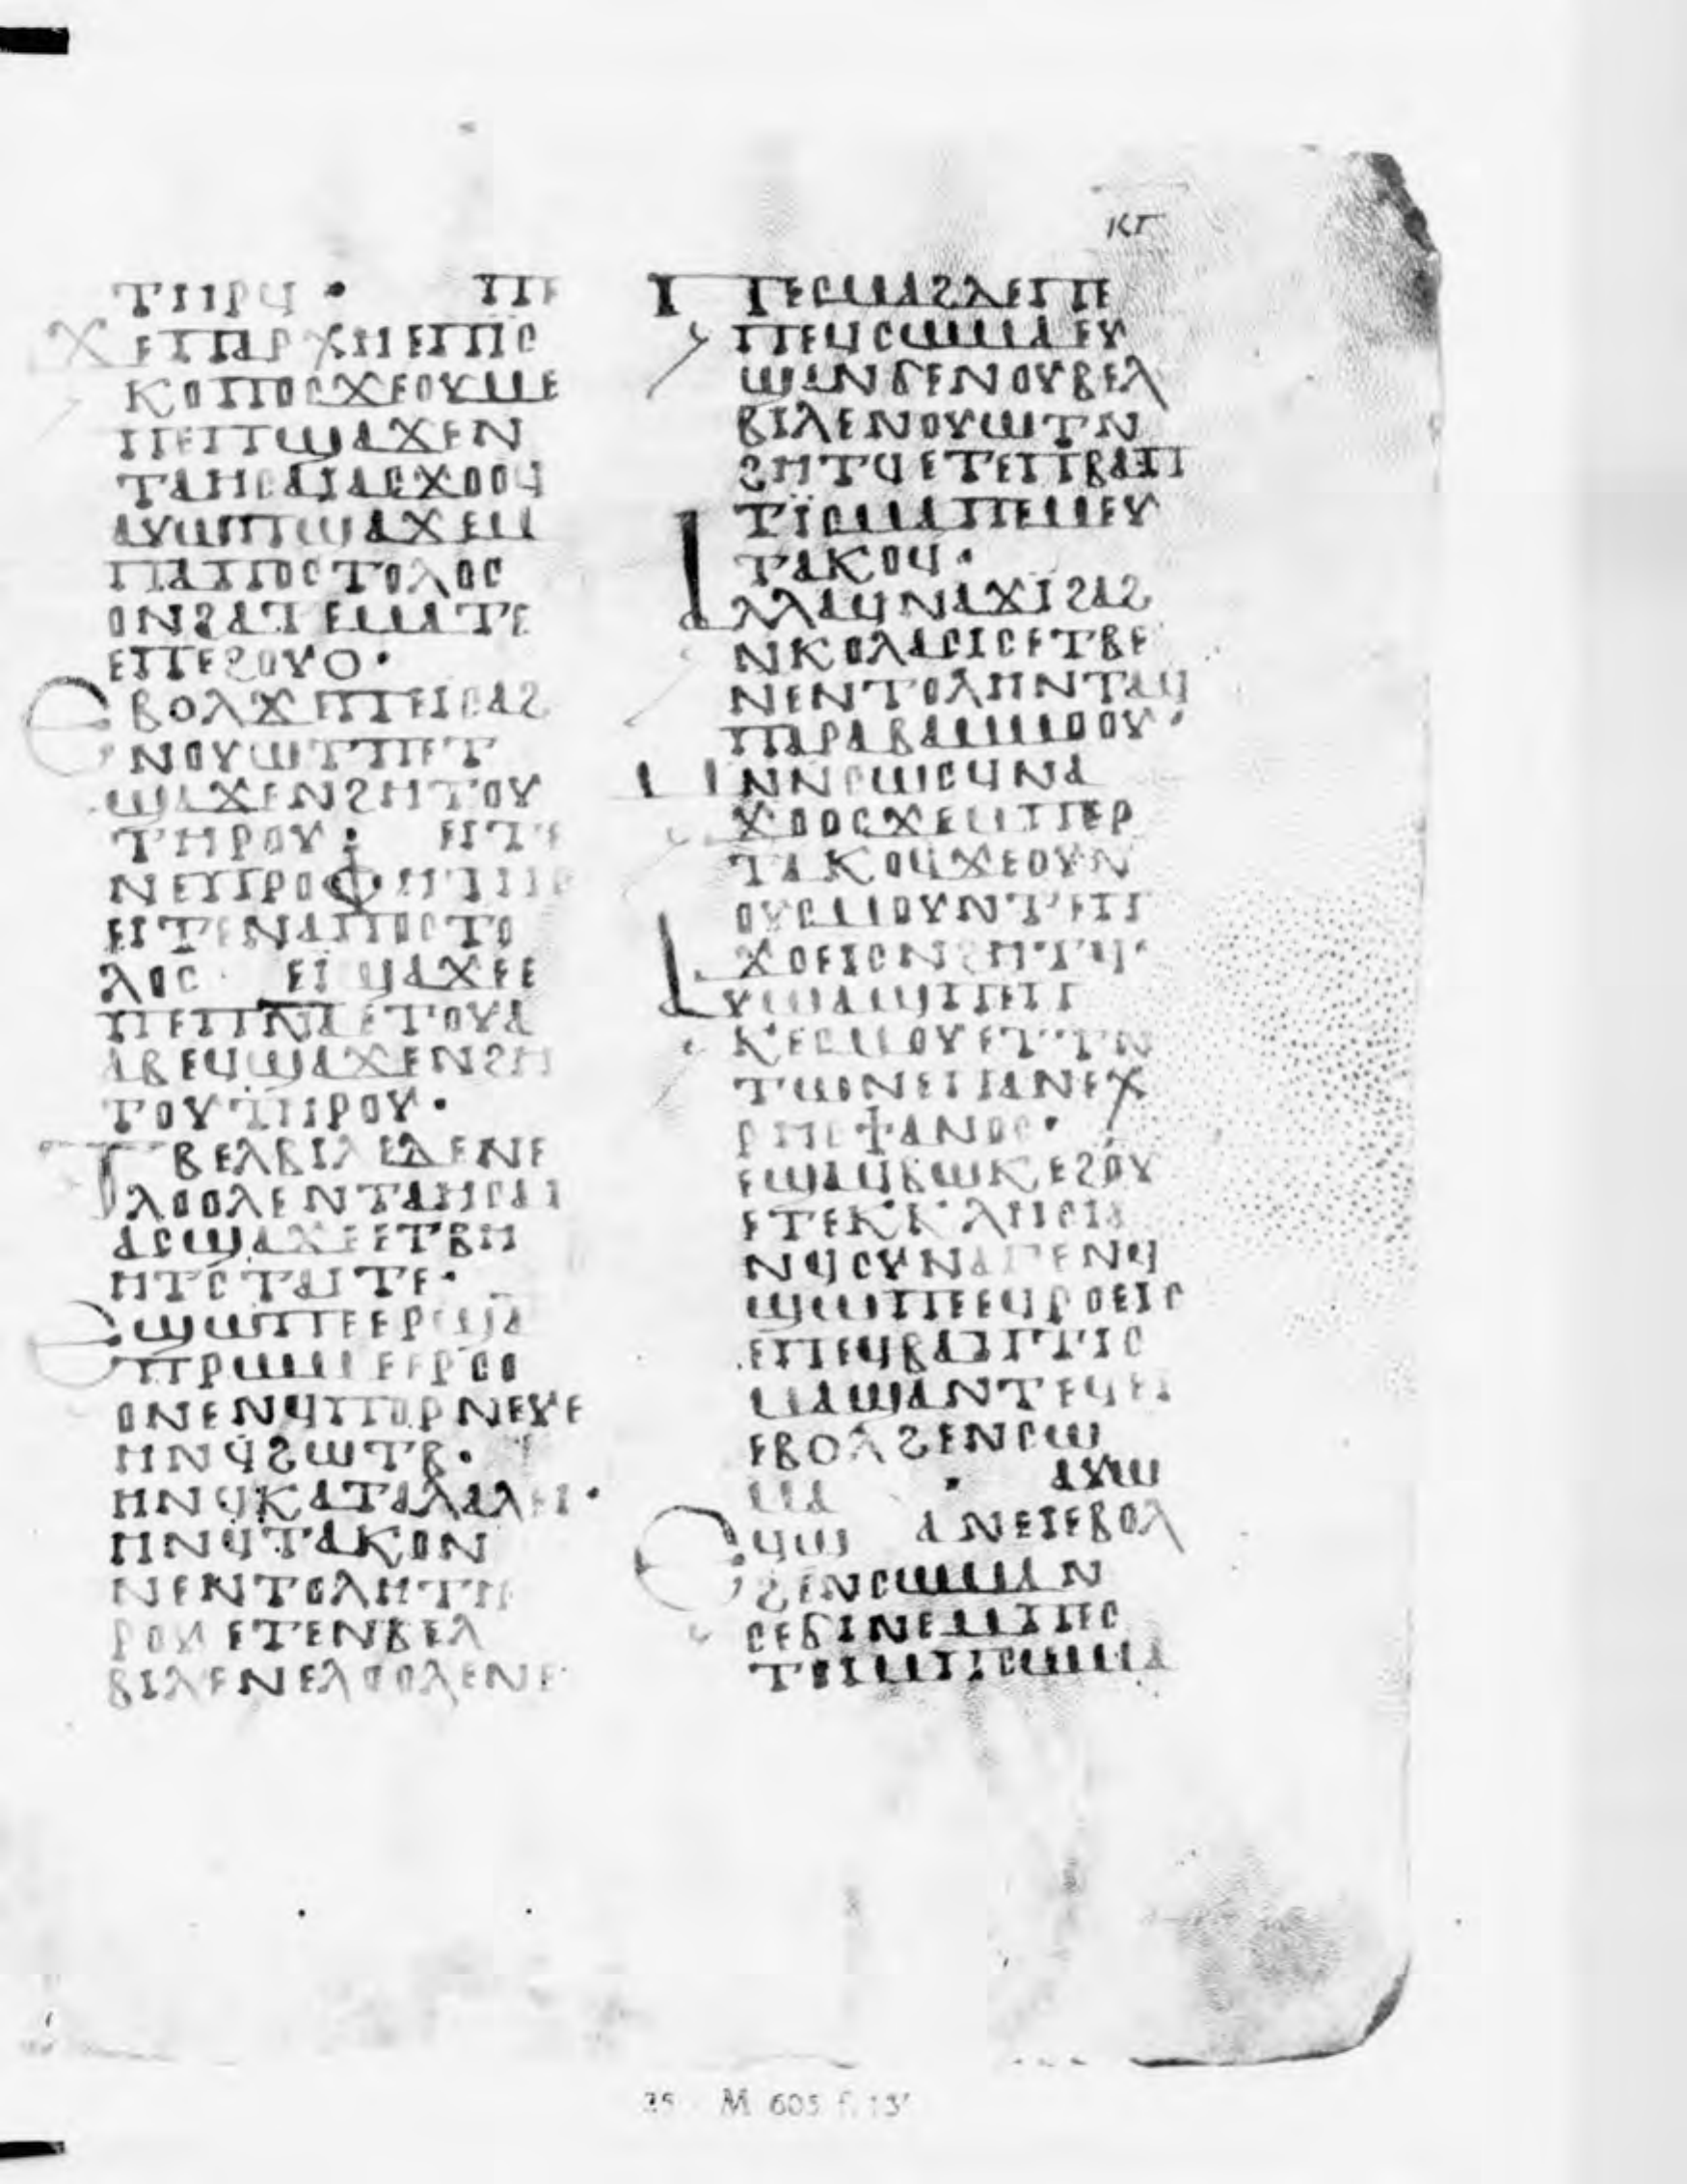 ⲕⲅ
ⲧⲏⲣϥ · ⲡⲉ
ϫⲉⲡⲁⲣⲭⲏⲉⲡⲓⲥ
ⲕⲟⲡⲟⲥϫⲉⲟⲩⲙⲉ
ⲡⲉⲡϣⲁϫⲉⲛ
ⲧⲁⲏⲥⲁⲓⲁⲥϫⲟⲟϥ
ⲁⲩⲱⲡϣⲁϫⲉⲙ
ⲡⲁⲡⲟⲥⲧⲟⲗⲟⲥ
ⲟⲛϩⲁⲧⲉⲙⲁⲧⲉ
ⲉⲡⲉϩⲟⲩⲟ·
ⲉⲃⲟⲗϫⲙⲡⲉⲓⲥⲁϩ
ⲛⲟⲩⲱⲧⲡⲉⲧ
ϣⲁϫⲉⲛϩⲏⲧⲟⲩ
ⲧⲏⲣⲟⲩ: ⲉⲓⲧⲉ
ⲛⲉⲡⲣⲟⲫⲏⲧⲏⲥ
ⲉⲓⲧⲉⲛⲁⲡⲟⲥⲧⲟ
ⲗⲟⲥ· ⲉⲓϣⲁϫⲉⲉ
ⲡⲉⲡⲛⲁⲉⲧⲟⲩⲁ
ⲁⲃⲉϥϣⲁϫⲉⲛϩⲏ
ⲧⲟⲩⲧⲏⲣⲟⲩ·
ⲧⲃⲉⲗⲃⲓⲗⲉⲇⲉⲛⲉ
ⲗⲟⲟⲗⲉⲛⲧⲁⲏⲥⲁⲓ
ⲁⲥϣⲁϫⲉⲉⲧⲃⲏ
ⲏⲧⲥⲧⲁⲓⲧⲉ·
ⲉϣⲱⲡⲉⲉⲣϣⲁ
ⲡⲣⲱⲙⲉⲉⲣⲥⲟ
ⲟⲛⲉⲛϥⲡⲟⲣⲛⲉⲩⲉ
ⲏⲛϥϩⲱⲧⲃ·
ⲏⲛϥⲕⲁⲧⲁⲗⲁⲗⲉⲓ·
ⲏⲛϥⲧⲁⲕⲟⲛ
ⲛⲉⲛⲧⲟⲗⲏⲧⲏ
ⲣⲟⲩⲉⲧⲉⲛⲃⲉⲗ
ⲃⲓⲗⲉⲛⲉⲗⲟⲟⲗⲉⲛⲉ
ⲡⲉⲥⲙⲁϩⲗⲉⲡⲉ
ⲡⲉϥⲥⲱⲙⲁⲉⲩ
ϣⲁⲛϭⲉⲛⲟⲩⲃⲉⲗ
ⲃⲓⲗⲉⲛⲟⲩⲱⲧⲛ
ϩⲏⲧϥⲉⲧⲉⲡⲃⲁⲡ
ⲧⲓⲥⲙⲁⲡⲉⲙⲉⲩ
ⲧⲁⲕⲟϥ·
ⲁⲗⲗⲁϥⲛⲁϫⲓϩⲁϩ
ⲛⲕⲟⲗⲁⲥⲓⲥⲉⲧⲃⲉ
ⲛⲉⲛⲧⲟⲗⲏⲛⲧⲁϥ
ⲡⲁⲣⲁⲃⲁⲙⲙⲟⲟⲩ·
ⲙⲛⲛⲥⲱⲥϥⲛⲁ
ϫⲟⲟⲥϫⲉⲙⲡⲉⲣ
ⲧⲁⲕⲟϥϫⲉⲟⲩⲛ
ⲟⲩⲥⲙⲟⲩⲛⲧⲉⲡ
ϫⲟⲉⲓⲥⲛϩⲏⲧϥ·
ⲁⲩⲱⲁϣⲡⲉⲡ
ⲕⲉⲥⲙⲟⲩⲉⲧⲧⲛ
ⲧⲱⲛⲉⲡⲁⲛⲉⲭ
ⲣⲏⲥϯⲁⲛⲟⲥ·
ⲉϣⲁϥⲃⲱⲕⲉϩⲟⲩ
ⲉⲧⲉⲕⲕⲗⲏⲥⲓⲁ
ⲛϥⲥⲩⲛⲁⲅⲉⲛϥ
ϣⲱⲡⲉⲉϥⲣⲟⲉⲓⲥ
ⲉⲡⲉϥⲃⲁⲡⲧⲓⲥ
ⲙⲁϣⲁⲛⲧⲉϥⲉⲓ
ⲉⲃⲟⲗϩⲉⲛⲥⲱ
ⲙⲁ · ⲁⲩⲱ
ⲉϥϣⲁⲛⲉⲓⲉⲃⲟⲗ
ϩⲉⲛⲥⲱⲙⲁⲛ
ⲥⲉϭⲓⲛⲉⲙⲡⲉⲥ
35 M 605 f. 13ʳ